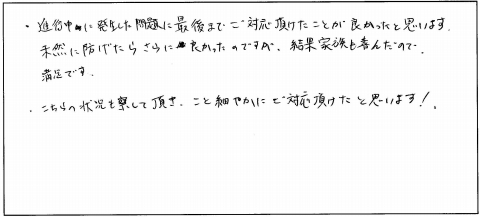 ・進行中に発生した問題に最後までご対応頂けたことが良かったと思います。
未然に防げたらさらに良かったのですが、結果家族も喜んだので、
満足です。
・こちらの状況を察して頂き、こと細やかにご対応頂けたと思います！。